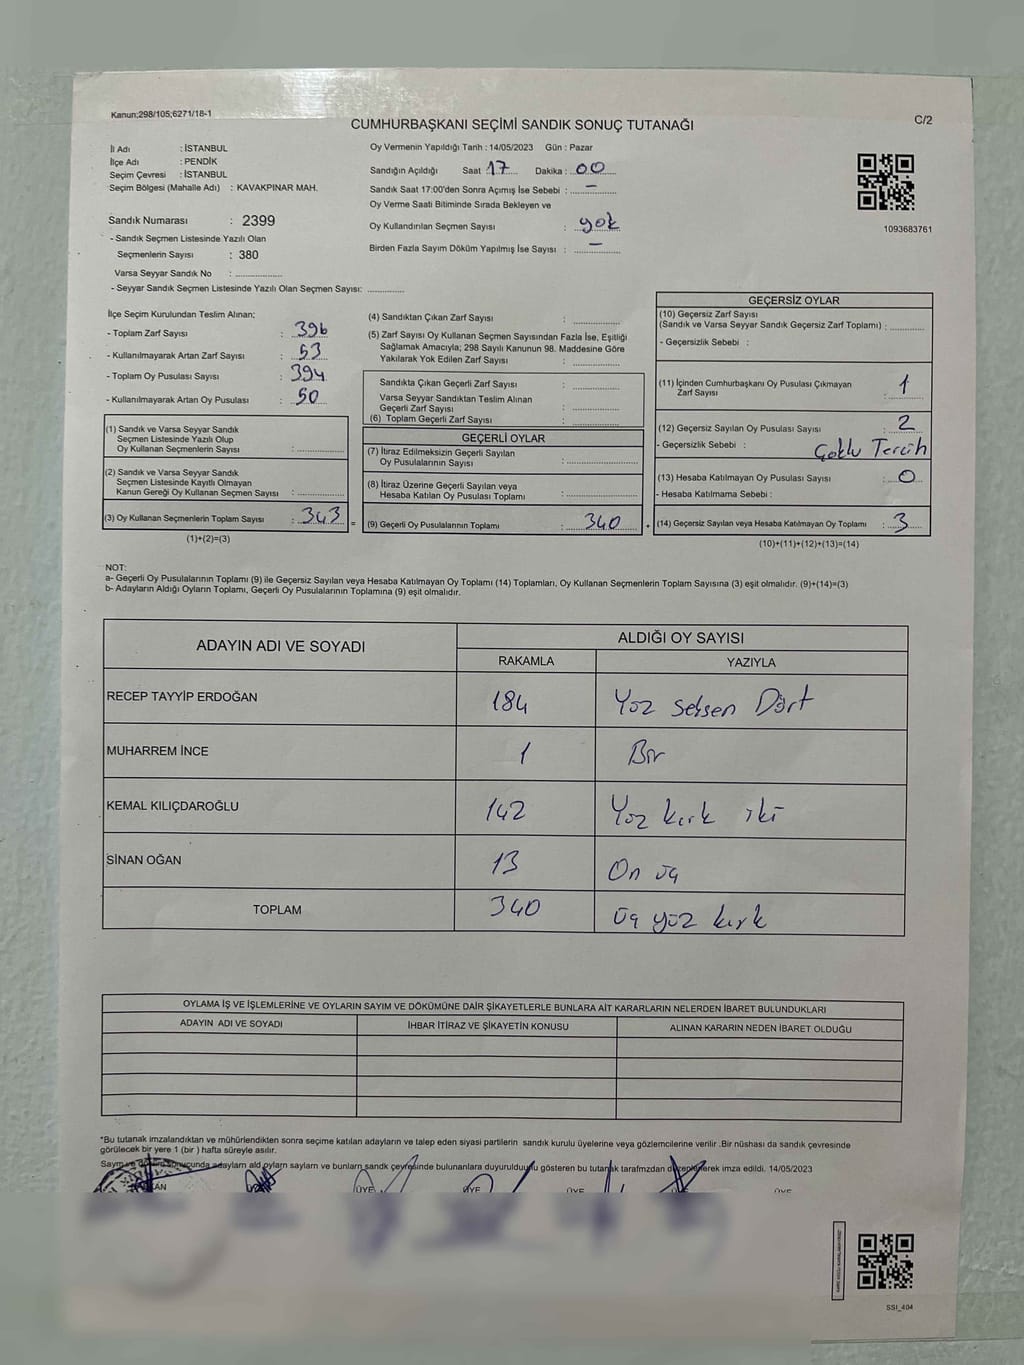 Kanun;298/105;6271/18-1
CUMHURBAŞKANI SEÇİMİ SANDIK SONUÇ TUTANAĞI
C/2
İl Adı : İSTANBUL
İlçe Adı : PENDİK
Seçim Çevresi : İSTANBUL
Seçim Bölgesi (Mahalle Adı) : KAVAKPINAR MAH.
Sandık Numarası : 2399
- Sandık Seçmen Listesinde Yazılı Olan
Seçmenlerin Sayısı : 380
Varsa Seyyar Sandık No :
- Seyyar Sandık Seçmen Listesinde Yazılı Olan Seçmen Sayısı:
Oy Vermenin Yapıldığı Tarih : 14/05/2023 Gün : Pazar
Sandığın Açıldığı Saat 17 Dakika : 00
Sandık Saat 17:00'den Sonra Açımış İse Sebebi : –
Oy Verme Saati Bitiminde Sırada Bekleyen ve
Oy Kullandırılan Seçmen Sayısı : yok
Birden Fazla Sayım Döküm Yapılmış İse Sayısı : –
1093683761
İlçe Seçim Kurulundan Teslim Alınan;
- Toplam Zarf Sayısı : 396
- Kullanılmayarak Artan Zarf Sayısı : 53
- Toplam Oy Pusulası Sayısı : 394
- Kullanılmayarak Artan Oy Pusulası : 50
(1) Sandık ve Varsa Seyyar Sandık
Seçmen Listesinde Yazılı Olup
Oy Kullanan Seçmenlerin Sayısı :
(2) Sandık ve Varsa Seyyar Sandık
Seçmen Listesinde Kayıtlı Olmayan
Kanun Gereği Oy Kullanan Seçmen Sayısı :
(3) Oy Kullanan Seçmenlerin Toplam Sayısı : 343
(1)+(2)=(3)
=
(4) Sandıktan Çıkan Zarf Sayısı :
(5) Zarf Sayısı Oy Kullanan Seçmen Sayısından Fazla İse, Eşitliği
Sağlamak Amacıyla; 298 Sayılı Kanunun 98. Maddesine Göre
Yakılarak Yok Edilen Zarf Sayısı :
Sandıkta Çıkan Geçerli Zarf Sayısı :
Varsa Seyyar Sandıktan Teslim Alınan
Geçerli Zarf Sayısı :
(6) Toplam Geçerli Zarf Sayısı :
GEÇERLİ OYLAR
(7) İtiraz Edilmeksizin Geçerli Sayılan
Oy Pusulalarının Sayısı :
(8) İtiraz Üzerine Geçerli Sayılan veya
Hesaba Katılan Oy Pusulası Toplamı :
(9) Geçerli Oy Pusulalarının Toplamı : 340
+
GEÇERSİZ OYLAR
(10) Geçersiz Zarf Sayısı
(Sandık ve Varsa Seyyar Sandık Geçersiz Zarf Toplamı) :
- Geçersizlik Sebebi :
(11) İçinden Cumhurbaşkanı Oy Pusulası Çıkmayan
Zarf Sayısı : 1
(12) Geçersiz Sayılan Oy Pusulası Sayısı : 2
- Geçersizlik Sebebi : Çoklu Tercih
(13) Hesaba Katılmayan Oy Pusulası Sayısı : 0
- Hesaba Katılmama Sebebi :
(14) Geçersiz Sayılan veya Hesaba Katılmayan Oy Toplamı : 3
(10)+(11)+(12)+(13)=(14)
NOT:
a- Geçerli Oy Pusulalarının Toplamı (9) ile Geçersiz Sayılan veya Hesaba Katılmayan Oy Toplamı (14) Toplamları, Oy Kullanan Seçmenlerin Toplam Sayısına (3) eşit olmalıdır. (9)+(14)=(3)
b- Adayların Aldığı Oyların Toplamı, Geçerli Oy Pusulalarının Toplamına (9) eşit olmalıdır.
ADAYIN ADI VE SOYADI
ALDIĞI OY SAYISI
RAKAMLA YAZIYLA
RECEP TAYYİP ERDOĞAN 184 Yüz seksen Dört
MUHARREM İNCE 1 Bir
KEMAL KILIÇDAROĞLU 142 Yüz kırk iki
SİNAN OĞAN 13 On üç
TOPLAM 340 üç yüz kırk
OYLAMA İŞ VE İŞLEMLERİNE VE OYLARIN SAYIM VE DÖKÜMÜNE DAİR ŞİKAYETLERLE BUNLARA AİT KARARLARIN NELERDEN İBARET BULUNDUKLARI
ADAYIN ADI VE SOYADI İHBAR İTİRAZ VE ŞİKAYETİN KONUSU ALINAN KARARIN NEDEN İBARET OLDUĞU
*Bu tutanak imzalandıktan ve mühürlendikten sonra seçime katılan adayların ve talep eden siyasi partilerin sandık kurulu üyelerine veya gözlemcilerine verilir .Bir nüshası da sandık çevresinde
görülecek bir yere 1 (bir ) hafta süreyle asılır.
Sayım ve döküm sonucunda adayların ald oyların sayların ve bunların sandk çevresinde bulunanlara duyurulduunu gösteren bu tutanak tarafmzdan düzenlenerek imza edildi. 14/05/2023
ÜYE ÜYE ÜYE ÜYE
SSI_404